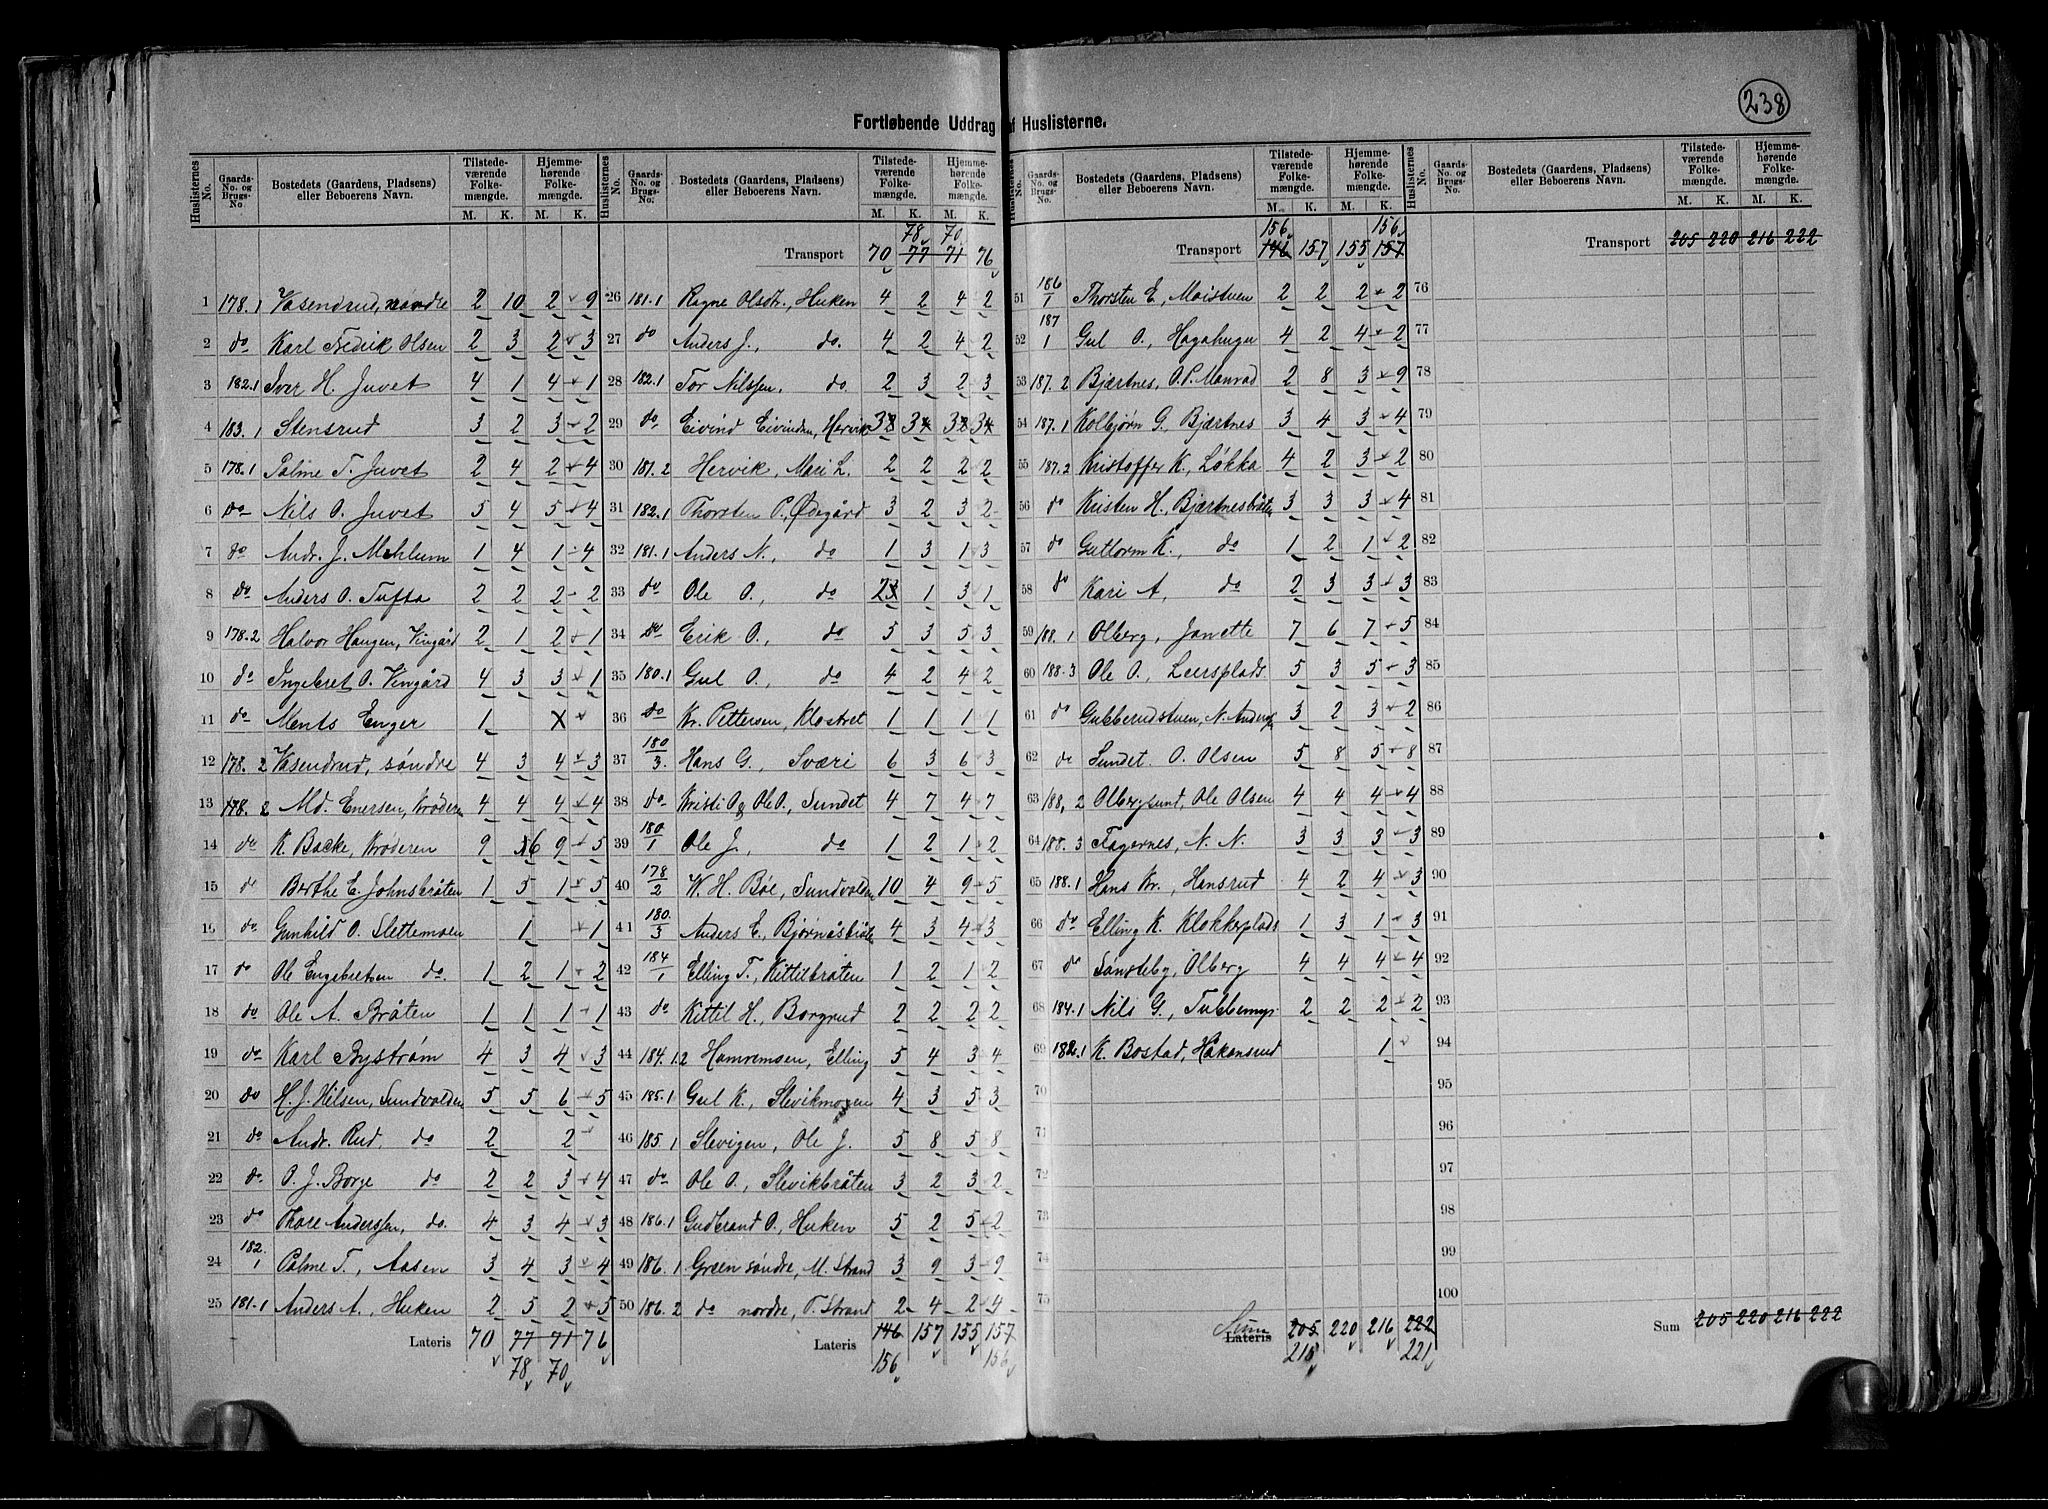 238
Fortløbende Uddrag af Huslisterne.
Huslisternes No. Gaards-No. og Brugs-No. Bostedets (Gaardens, Pladsens) eller Beboerens Navn. Tilstedeværende Folkemængde. M. K. Hjemmehørende Folkemængde. M. K.
1 178.1 Vasendrud, nordre 2 10 2 9
2 do Karl Fredrik Olsen 2 3 2 3
3 182.1 Iver H. Juvet 4 1 4 1
4 183.1 Stensrud 3 2 3 2
5 178.1 Palme T. Juvet 2 4 2 4
6 do Nils O. Juvet 5 4 5 4
7 do Andr. J. Mehlum 1 4 1 4
8 do Anders O. Tufta 2 2 2 2
9 178.2 Halvor Haugen, Vingård 2 1 2 1
10 do Ingebret O. Vingård 4 3 3 1
11 do Ments Enger 1
12 178.2 Vasendrud, søndre 4 3 4 3
13 178.2 Md. Enersen, Krøderen 4 4 4 4
14 do K. Bakke, Krøderen 9 6 9 5
15 do Berthe E. Johnsbråten 1 5 1 5
16 do Gunhild O. Slettemoen 1 1
17 do Ole Engebretsen do. 1 2 1 2
18 do Ole A. Bråten 1 1 1 1
19 do Karl Bystrøm 4 3 4 3
20 do H. J. Nilsen, Sundvolden 5 5 6 5
21 do Andr. Rud, do 2 2
22 do O. J. Borge do 2 2 3 4
23 do Thore Anderssen, do. 4 3 4 3
24 182.1 Palme T., Aasen 3 4 3 4
25 181.1 Anders A., Huken 2 5 2 5
Lateris 70 77 71 76
78 70
Huslisternes No. Gaards-No. og Brugs-No. Bostedets (Gaardens, Pladsens) eller Beboerens Navn. Tilstedeværende Folkemængde. M. K. Hjemmehørende Folkemængde. M. K.
78 70
Transport 70 77 71 76
26 181.1 Ragne Olsdr., Huken 4 2 4 2
27 do Anders J., do. 4 2 4 2
28 182.1 Tor Nilssen, do 2 3 2 3
29 do Eivind Eivindsen, Hervik 3 3 3 3
30 181.2 Hervik, Mari L. 2 2 2 2
31 182.1 Thorsten P., Ødegård 3 2 3 2
32 181.1 Anders N., do 1 3 1 3
33 do Ole O., do 2 1 3 1
34 do Erik O., do 5 3 5 3
35 180.1 Gul O., do 4 2 4 2
36 do Kr. Pettersen, Klostret 1 1 1 1
37 180/3. Hans G., Sværi 6 3 6 3
38 do Kristi O. & Ole O., Sundet 4 7 4 7
39 180/1 Ole J., do 1 2 1 2
40 178/2 K. H. Bøe, Sundvolden 10 4 9 5
41 180./3 Anders E., Bjørnåsbråten 4 3 4 3
42 184/1 Elling T., Kittilbråten 1 2 1 2
43 do Kittil H., Borgrud 2 2 2 2
44 184.1.2 Hamremoen, Elling 5 4 3 4
45 185.1 Gul K., Slevikmogen 4 3 5 3
46 185.1 Slevigen, Ole J. 5 8 5 8
47 do Ole O., Slevikbråten 3 2 3 2
48 186.1 Gudbrand O., Huken 5 2 5 2
49 186.1 Green søndre, M. Strand 3 9 3 9
50 186.2 do nordre, O. Strand 2 4 2 4
Lateris 146 157 155 157
156 156
Huslisternes No. Gaards-No. og Brugs-No. Bostedets (Gaardens, Pladsens) eller Beboerens Navn. Tilstedeværende Folkemængde. M. K. Hjemmehørende Folkemængde. M. K.
156 156
Transport 146 157 155 157
51 186/1 Thorsten E., Moistuen 2 2 2 2
52 187/1 Gul O., Hagahugu 4 2 4 2
53 187.2 Bjærtnes, O. P. Monrad 2 8 3 9
54 187.1 Kolbjørn G. Bjærtnes 3 4 3 4
55 187.2 Kristoffer K., Løkka 4 2 3 2
56 do Kristen H., Bjærtnesbråten 3 3 3 4
57 do Guttorm K., do 1 2 1 2
58 do Kari A, do 2 3 3 3
59 188.1 Olberg, Janette 7 6 7 5
60 188.3 Ole O., Leersplads 5 3 5 3
61 do Gubberudstuen, N. Anders 3 2 3 2
62 do Sundet O. Olsen 5 8 5 8
63 188.2 Olbergsund, Ole Olsen 4 4 4 4
64 188.3 Fagernes, N. N. 3 3 3 3
65 188.1 Hans Kr., Hansrud 4 2 4 3
66 do Elling K. Klokkerplads 1 3 1 3
67 do Sønsteby, Olberg 4 4 4 4
68 184.1 Nils G., Tubbemyr 2 2 2 2
69 182.1 K. Bostad, Håkonsrud 1
70
71
72
73
74
75
Sum
Lateris 205 220 216 222
215 221
Huslisternes No. Gaards-No. og Brugs-No. Bostedets (Gaardens, Pladsens) eller Beboerens Navn. Tilstedeværende Folkemængde. M. K. Hjemmehørende Folkemængde. M. K.
Transport 205 220 216 222
76
77
78
79
80
81
82
83
84
85
86
87
88
89
90
91
92
93
94
95
96
97
98
99
100
Sum 205 220 216 222